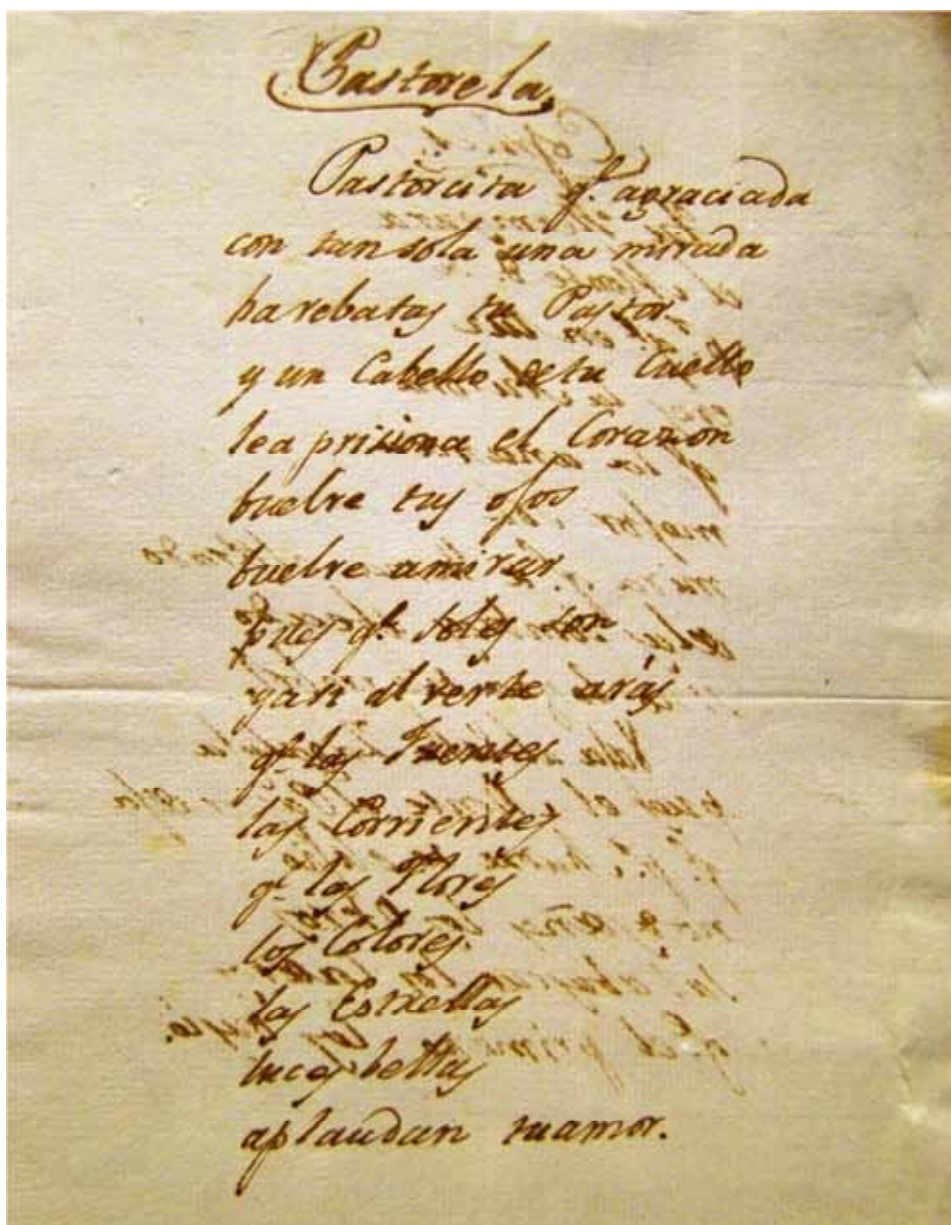 Pastorela
Pastorcita q.e agraciada
con tan sola una mirada
harebatas tu Pastor
y un Cabello de tu Cuello
lea prisiona el Corazon
buelve tus ojos
buelve amirar
pues q.e soles son
yasi al verte arás
q.e las Fuentes
las Corrientes
q.e las Flores
los Colores
las Estrellas
luces bellas
aplaudan tuamor.